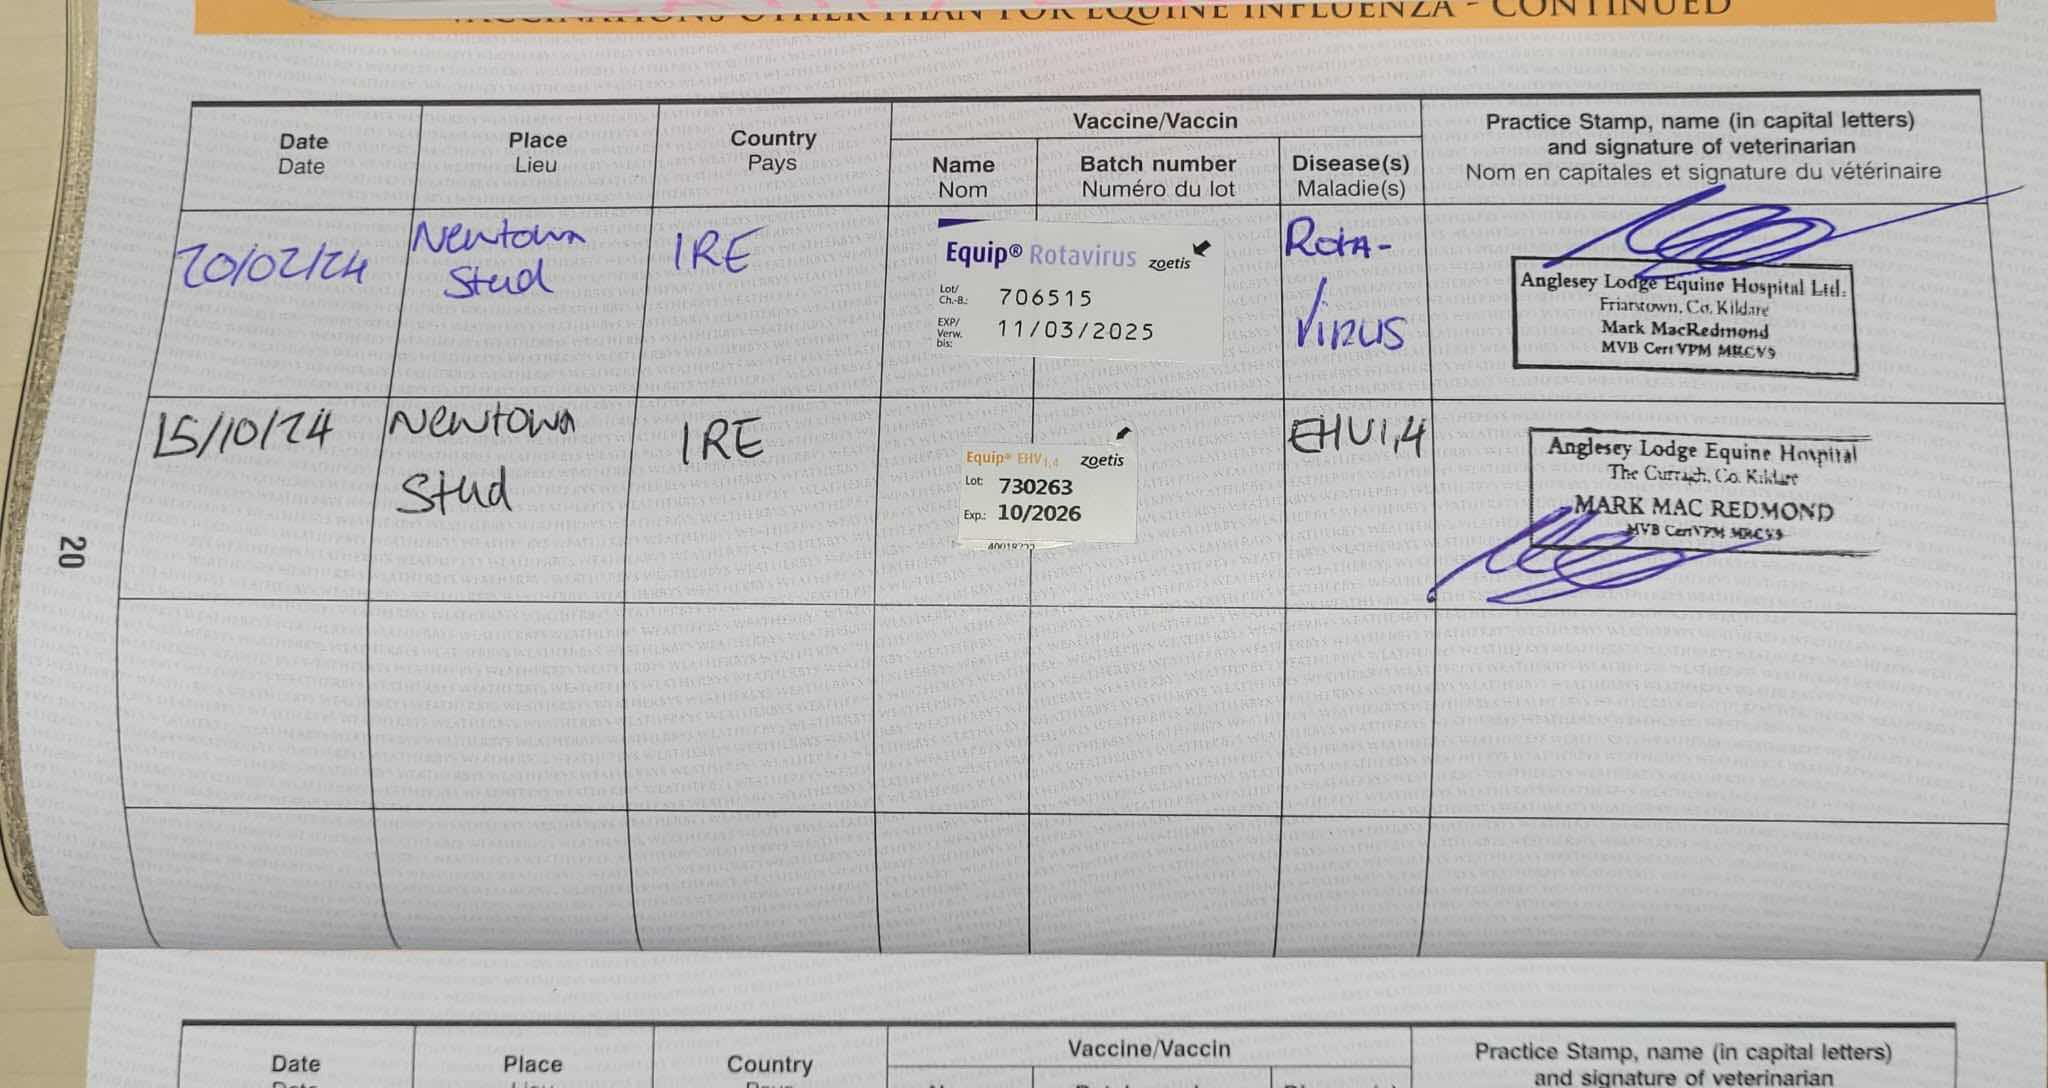 VACCINATIONS OTHER THAN FOR EQUINE INFLUENZA - CONTINUED
Date
Date
Place
Lieu
Country
Pays
Vaccine/Vaccin
Name
Nom
Batch number
Numéro du lot
Disease(s)
Maladie(s)
Practice Stamp, name (in capital letters)
and signature of veterinarian
Nom en capitales et signature du vétérinaire
20/02/24
Newtown
Stud
IRE
Equip® Rotavirus zoetis
Lot/
Ch.-B.: 706515
EXP/
Verw.
bis: 11/03/2025
ROTA-
VIRUS
Anglesey Lodge Equine Hospital Ltd.
Friarstown, Co. Kildare
Mark MacRedmond
MVB Cert VPM MRCVS
15/10/24
Newtown
Stud
IRE
Equip® EHV1,4 zoetis
Lot: 730263
Exp.: 10/2026
EHV1,4
Anglesey Lodge Equine Hospital
The Curragh, Co. Kildare
MARK MAC REDMOND
MVB CertVPM MRCVS
20
Date
Place
Country
Vaccine/Vaccin
Practice Stamp, name (in capital letters)
and signature of veterinarian